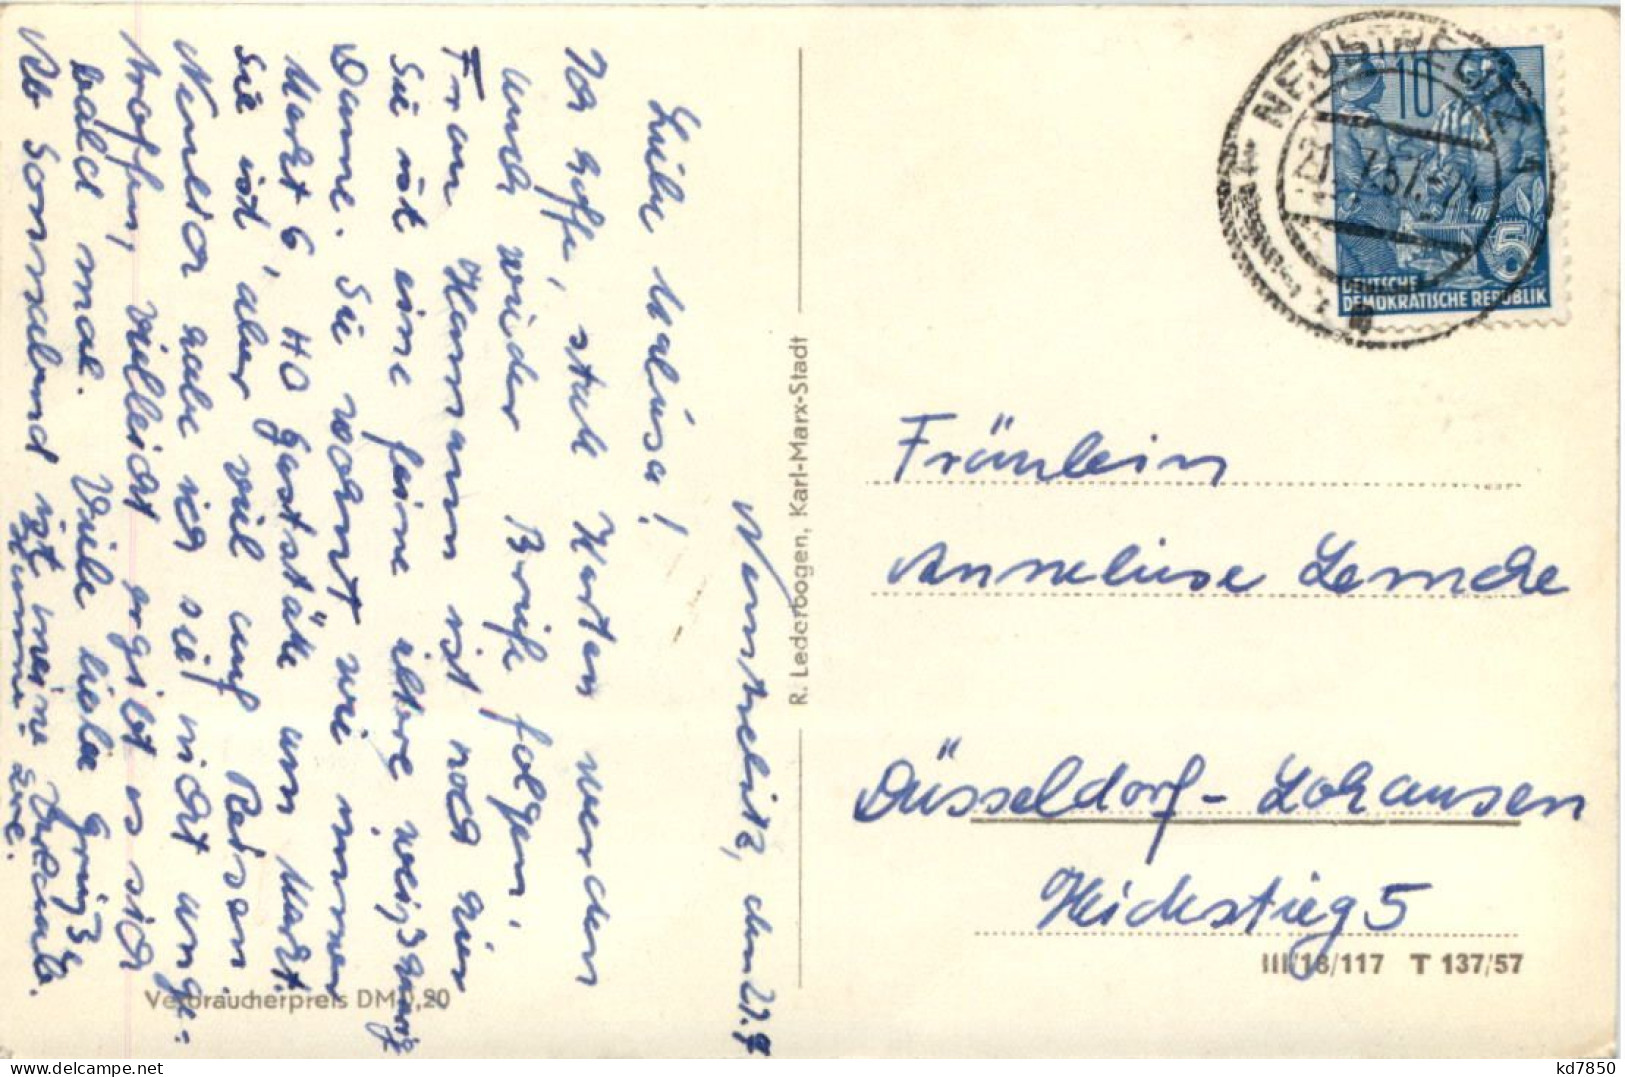 Neustrelitz, den 21.9
Liebe Malisa!
Ich hoffe, statt Karten werden
auch wieder Briefe folgen.
Frau Hamann ist noch hier
Sie ist eine feine ältere weißhaarig
Dame. Sie wohnt wie immer
Markt 6, HO Gaststätte am Markt.
Sie ist aber viel auf Reisen.
Neulich habe ich sie nicht ange-
troffen, vielleicht ergibt es sich
bald mal. Viele liebe Grüße
Ab Sonnabend ist meine Schule.
Eure.
R. Lederbogen, Karl-Marx-Stadt
Verbraucherpreis DM 0,20
NEUSTRELITZ 1
10
5
DEUTSCHE
DEMOKRATISCHE REPUBLIK
Fräulein
Anneliese Lemcke
Düsseldorf-Lohausen
Heidestieg 5
III/18/117 T 137/57
kd7850